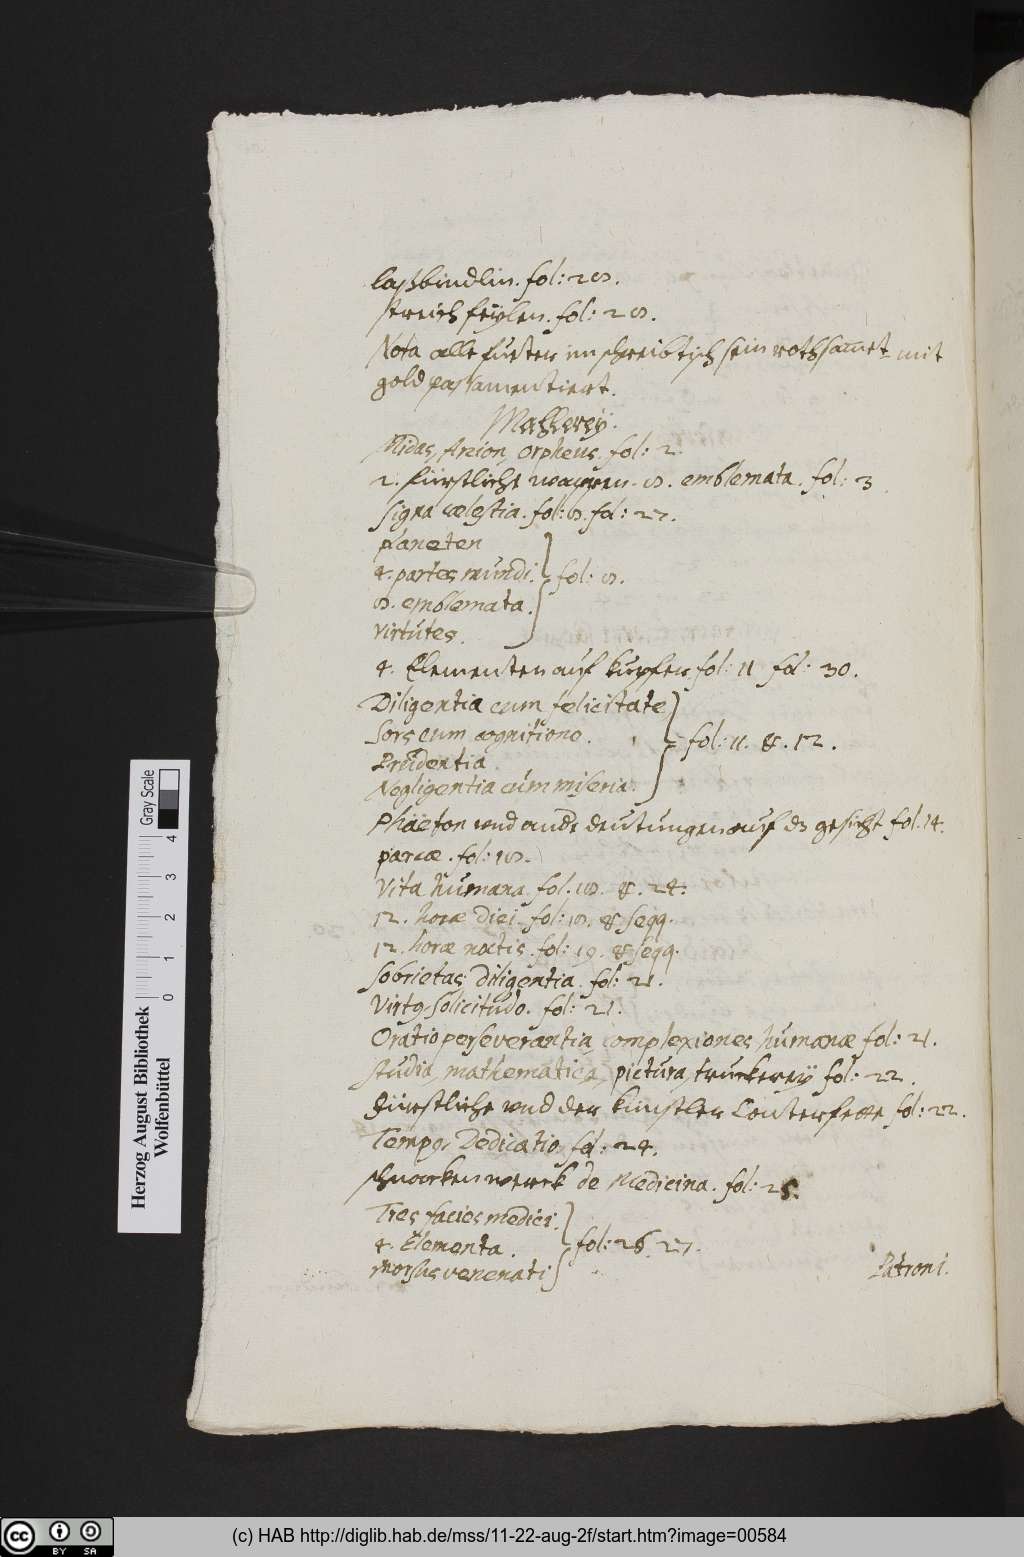 laßbindlin. fol: 28.
streich feylen. fol: 28.
Nota alle fueter im schreibtisch sein roth samet mit
gold passamentiert.
Mahlerey.
Midas, Arion, Orpheus. fol: 2
2. fürstliche wappen. 8. emblemata. fol: 3
Signa cælestia. fol: 8. fol: 27.
planeten
4. partes mundi. } fol: 8.
8. emblemata.
Virtutes.
4. Elementen auf kupfer fol: 11 fol: 30.
Diligentia cum felicitate
Sors cum cognitione. } fol: 11. & 12.
Prudentia
Negligentia cum miseria.
Phaeton vnd andere deutungen auf das gesicht fol. 14.
parcæ. fol: 18.
Vita humana fol. 18. & 24.
12. horæ diei. fol: 18. & seqq.
12. horæ noctis. fol: 19. & seqq.
Sobrietas diligentia. fol: 21.
Virtus, Solicitudo. fol: 21.
Oratio perseverantia, complexiones humanæ fol: 21.
studia, mathematica, pictura, truckerey fol: 22.
fürstliche vnd der künstler Conterfette fol: 22.
Tempus, Dedicatio fol: 24.
schnackenwerck de Medicina. fol: 25.
Tres facies medici.
4. Elementa. } fol: 26. 27.
morsus venenati
Patroni.
Herzog August Bibliothek
Wolfenbüttel
0 1 2 3 4
Gray Scale
(c) HAB http://diglib.hab.de/mss/11-22-aug-2f/start.htm?image=00584
cc BY SA